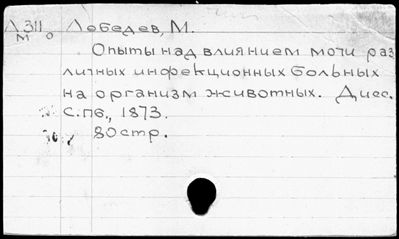 Л 311 Лебедев, М.
М
Опыты над влиянием мочи раз
личных инфекционных больных
на организм животных. Дисс.
С.пб., 1873.
80 стр.